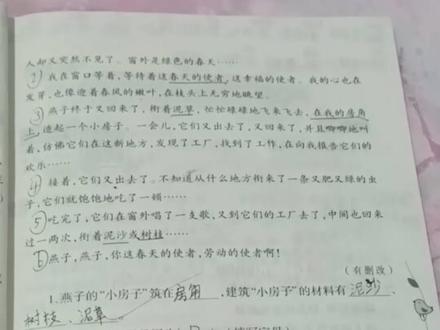 人却又突然不见了。窗外是绿色的春天……
② 我在窗口等着,等待着这春天的使者,这幸福的使者。我的心也在
发芽,也像迎着春风的嫩叶,在枝头上无穷地眺望。
③ 燕子终于又回来了。衔着泥草,忙忙碌碌地飞来飞去,在我的房角
上,造起一个小房子。一会儿,它们又出去了,又回来了,并且唧唧地叫
着,仿佛它们在这新地方,发现了工厂,找到了工作,在向我报告它们的
欢乐……
④ 接着,它们又出去了。不知道从什么地方衔来了一条又肥又绿的虫
子,它们就饱饱地吃了一顿……
⑤ 吃完了,它们在窗外唱了一支歌,又到它们的工厂去了,中间也回来
过一两次,衔着泥沙或树枝……
⑥ 燕子,燕子,你这春天的使者,劳动的使者啊!
(有删改)
1.燕子的“小房子”筑在房角,建筑“小房子”的材料有泥沙、
树枝、泥草。